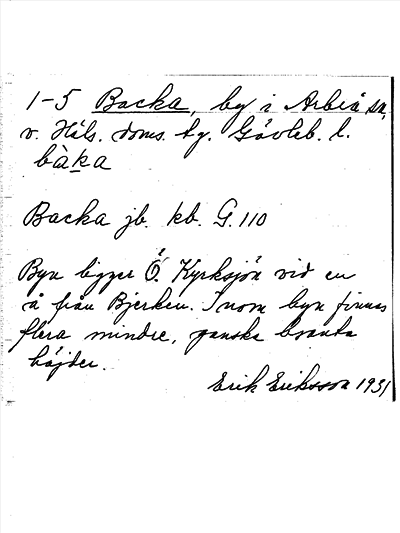 1-5 Backa, by i Arbrå sn,
v. Häls. doms. tg. Gävleb. l.
bàka
Backa jb. kb. G.110
Byn ligger Ö. Kyrksjön vid en
å från Bjerken. Inom byn finnas
flera mindre, ganska branta
höjder.
Erik Eriksson 1931